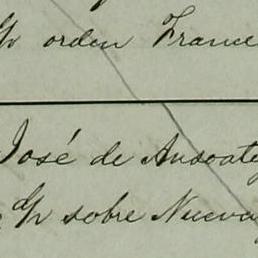 orden France
José de Ansoateg
sobre Nueva